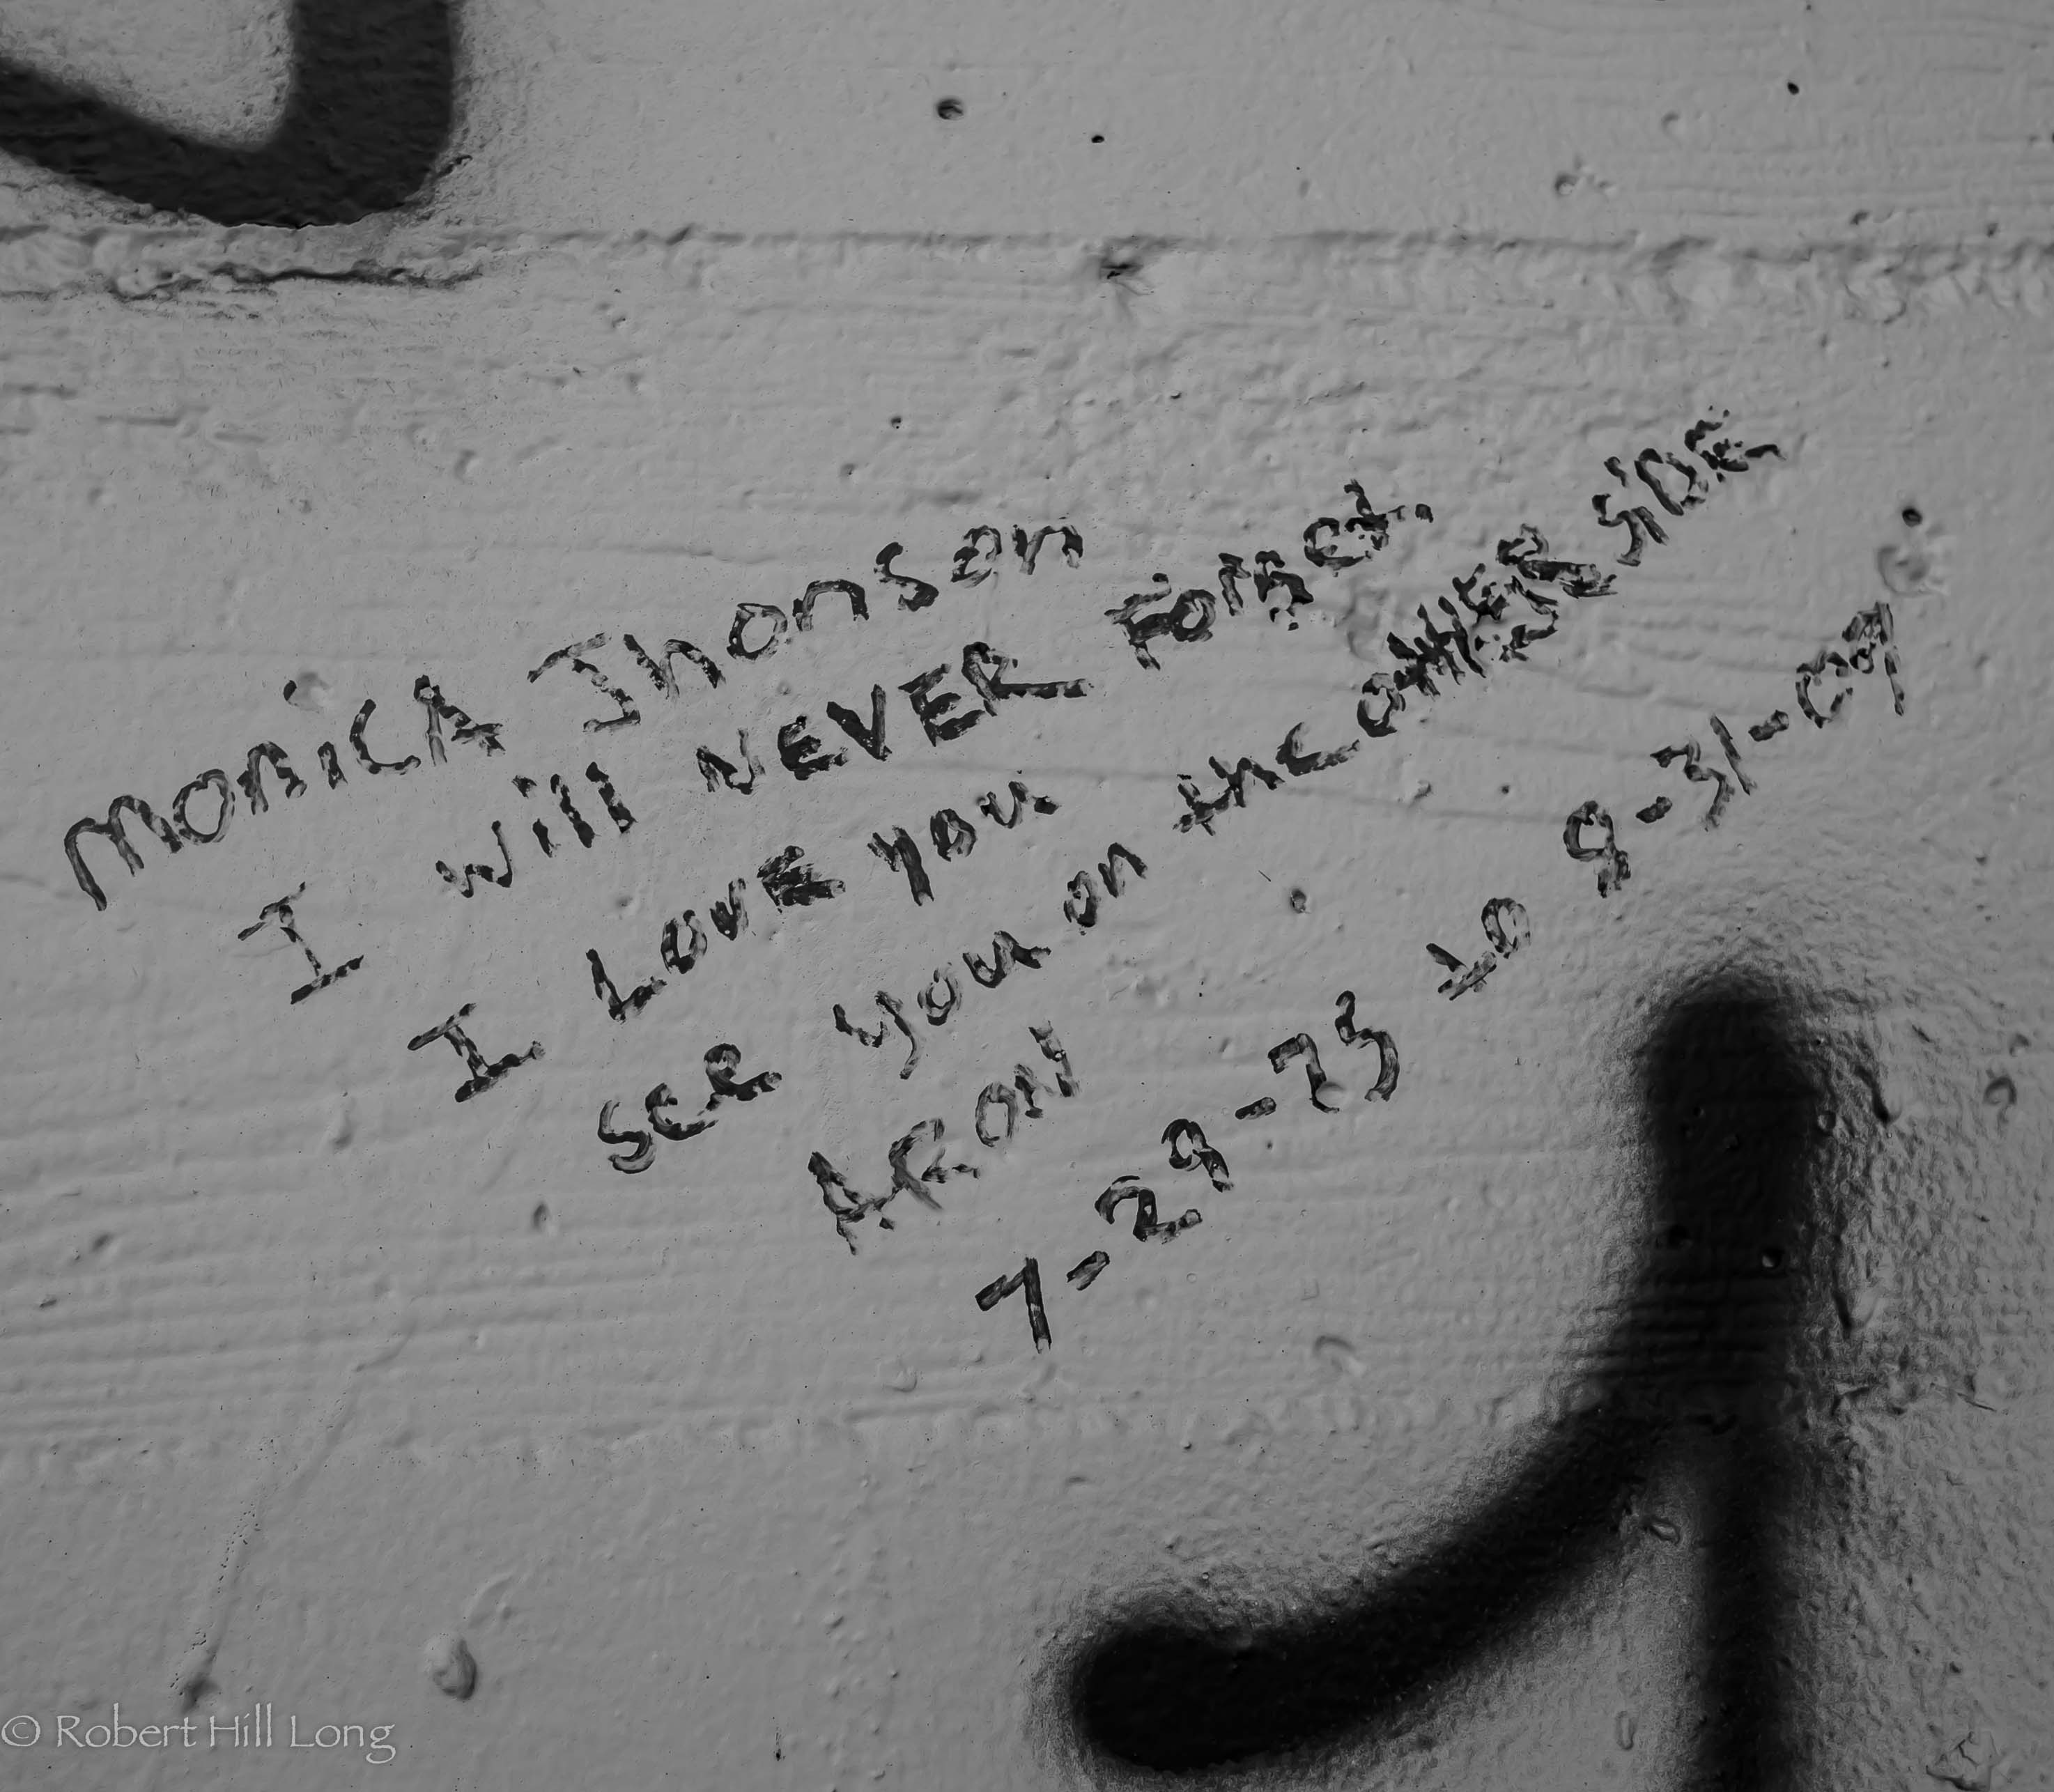 MONICA Jhonson
I will NEVER Forget.
I LOVE you
SEE you on the other SiDE
ARON
7-29-73 to 9-31-09
© Robert Hill Long